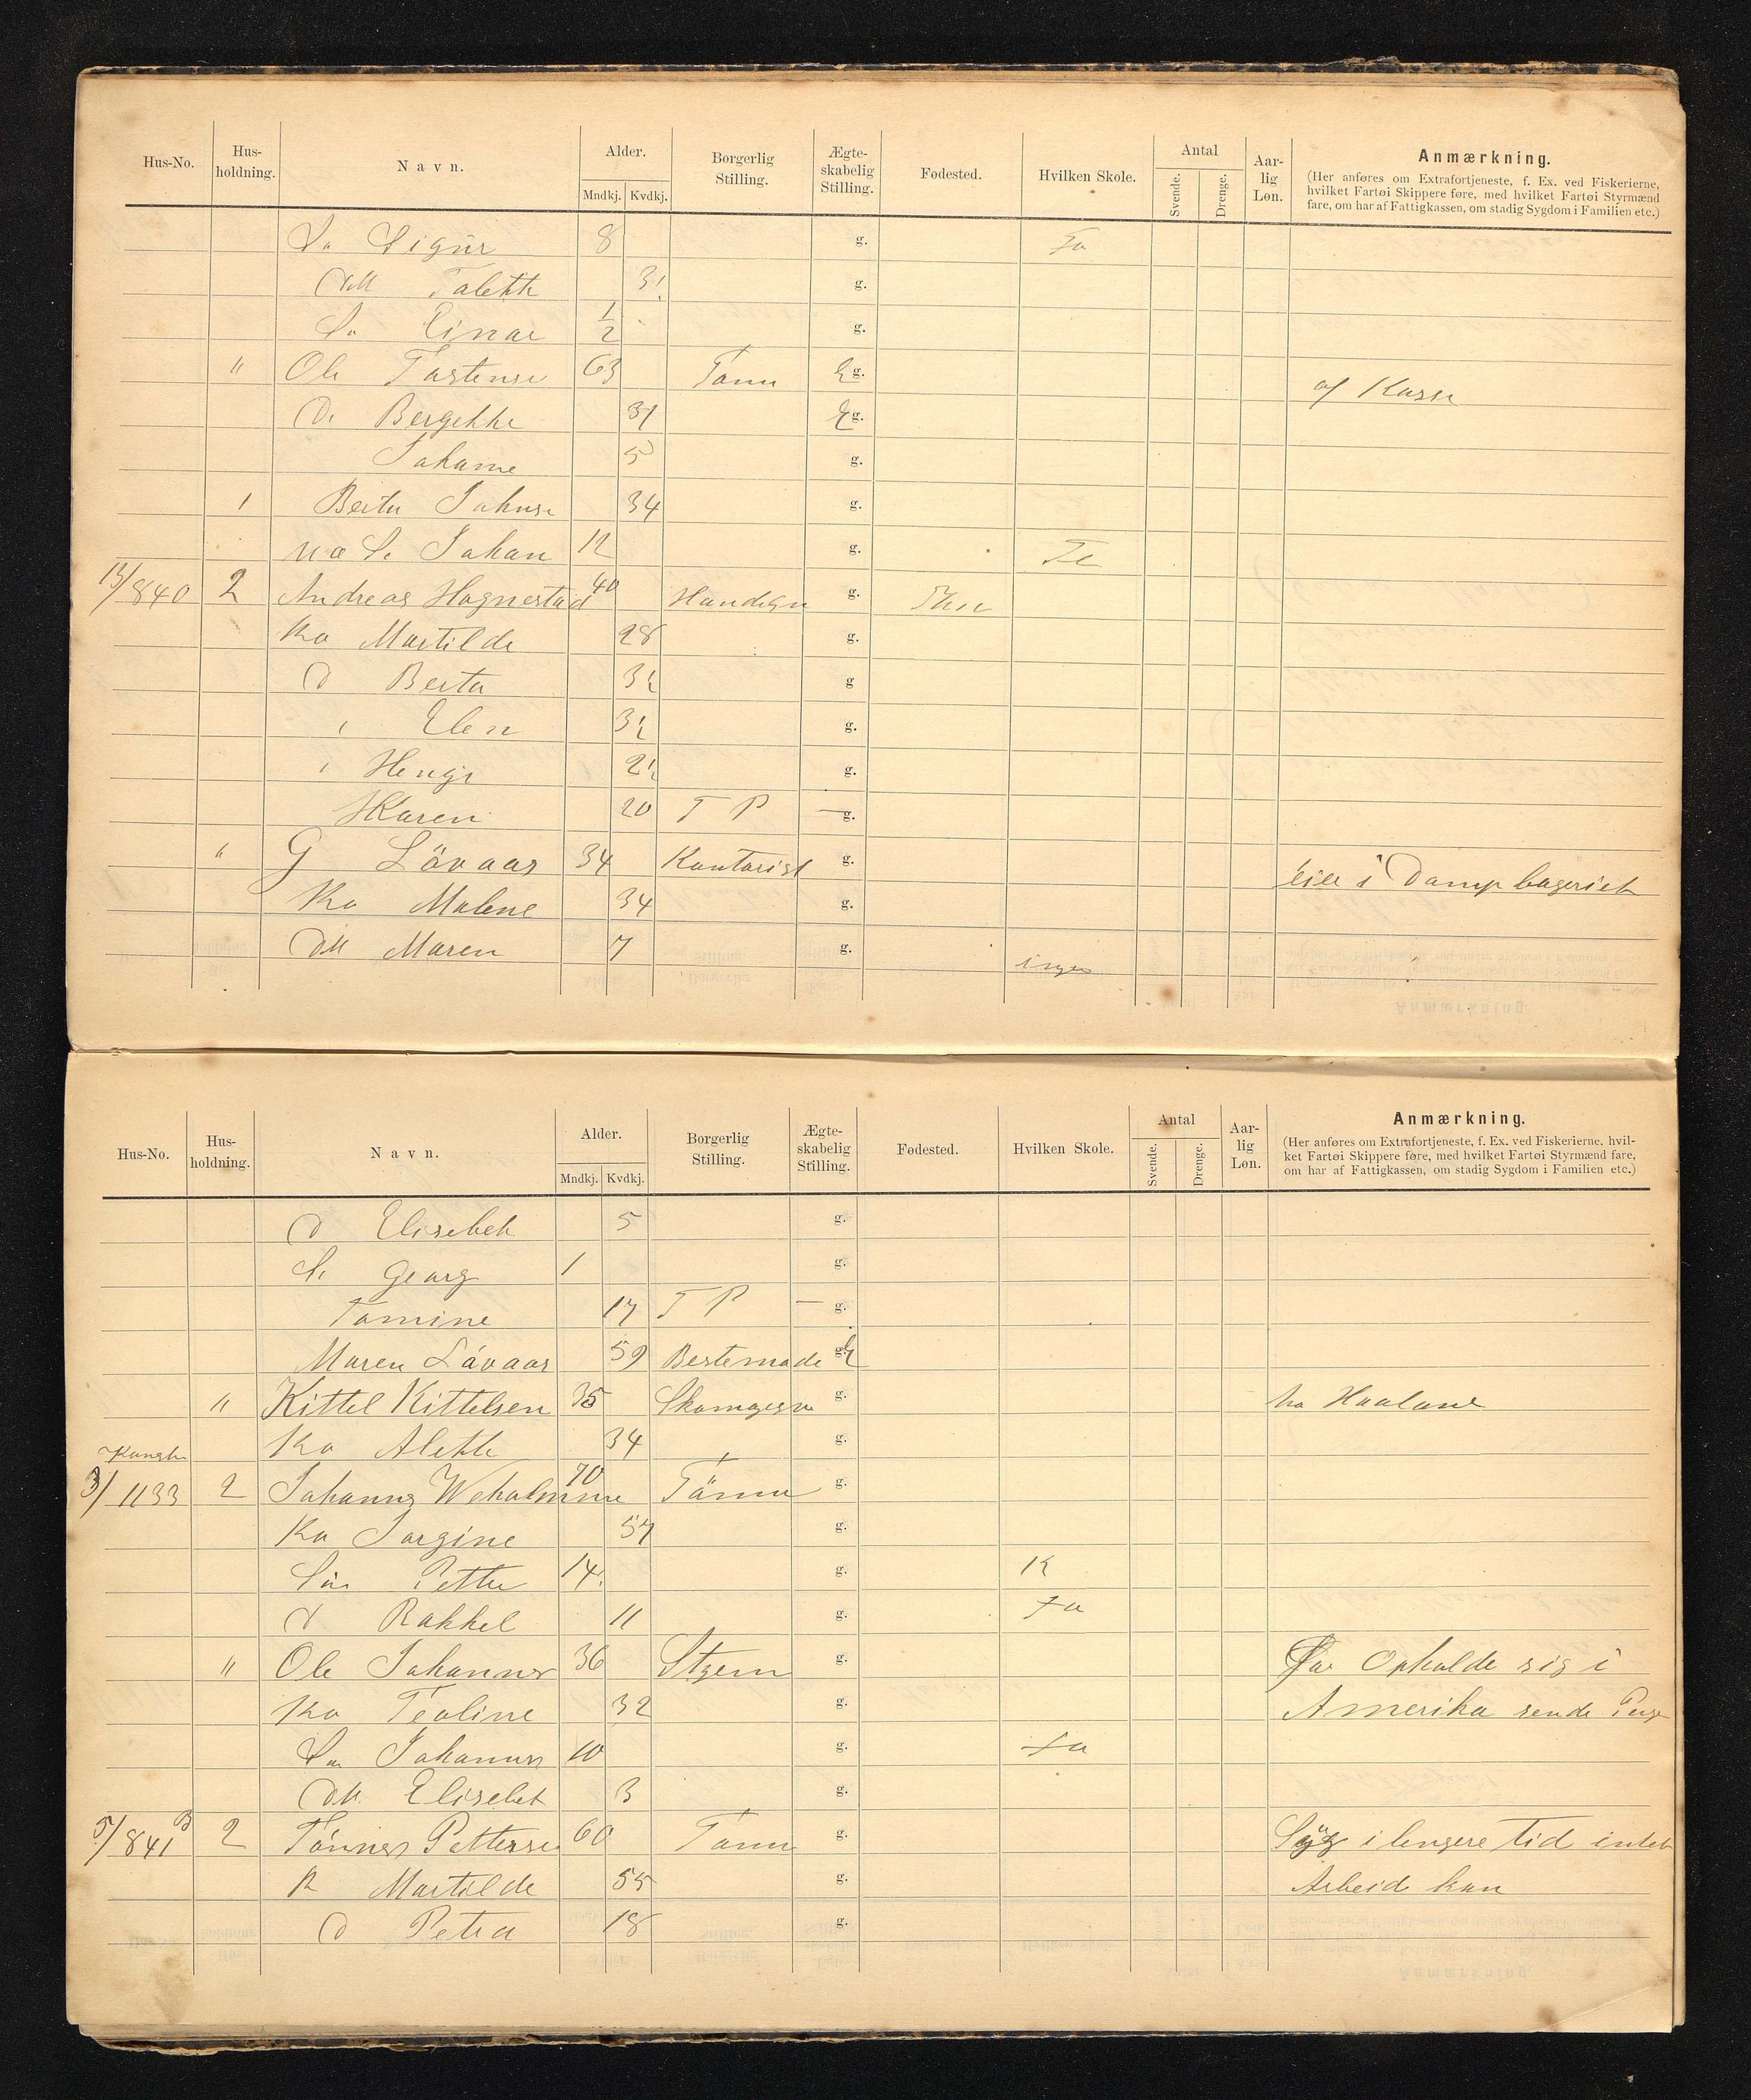 Hus-No. Hus-holdning. Navn. Alder. Mndkj. Kvdkj. Borgerlig Stilling. Ægte-skabelig Stilling. Fødested. Hvilken Skole. Antal Svende. Drenge. Aar-lig Løn. Anmærkning.
(Her anføres om Extrafortjeneste, f. Ex. ved Fiskerierne,
hvilket Fartøi Skippere føre, med hvilket Fartøi Styrmænd
fare, om har af Fattigkassen, om stadig Sygdom i Familien etc.)
Sø Sigur 8 g. Fa
Dtt Talette 3 g.
Sø Einar 1/2 g.
" Ole Tostense 63 Tønn E g. af Kasse
D. Bergette 31 E g.
Johanne 5 g.
1 Berta Johnse 34 g.
S. Johan 12 g.
13/840 2 Andreas Hognestad 40 g.
Ko Martilde 28 g.
D Berta 3½ g
" Elen 3½ g.
" 2½ g.
Karen 20 T P — g.
" G Lövaas 34 Kontorist g. eier i Dampbageriet
Ko Malene 34 g.
Dtt Maren 7 g. ingen
Hus-No. Hus-holdning. Navn. Alder. Mndkj. Kvdkj. Borgerlig Stilling. Ægte-skabelig Stilling. Fødested. Hvilken Skole. Antal Svende. Drenge. Aar-lig Løn. Anmærkning.
(Her anføres om Extrafortjeneste, f. Ex. ved Fiskerierne, hvil-
ket Fartøi Skippere føre, med hvilket Fartøi Styrmænd fare,
om har af Fattigkassen, om stadig Sygdom i Familien etc.)
D Elisebet 5 g.
S. Georg 1 g.
Tomine 17 T P — g.
Maren Lövaas 59 Bestemode g. E
" Kittel Kittelsen 35 g. ho Haaland
Ko Alette 34 g.
3/1133 2 Johannes 70 Tönn g.
Ko Jorgine 57 g.
Sön Petter 14 g. K
D Rakkel 11 g. Fa
" Ole Johannes 36 g. Opholde sig i
Ko Teoline 32 g. Amerika sende Penge
Søn Johannes 10 g. Fa
Dtt Elisebet 3 g.
5/841 B 2 Tönnes Petterse 60 Tönn g. Syg i lengere tid intet
K Martilde 55 g. Arbeid kan
D Petra 18 g.